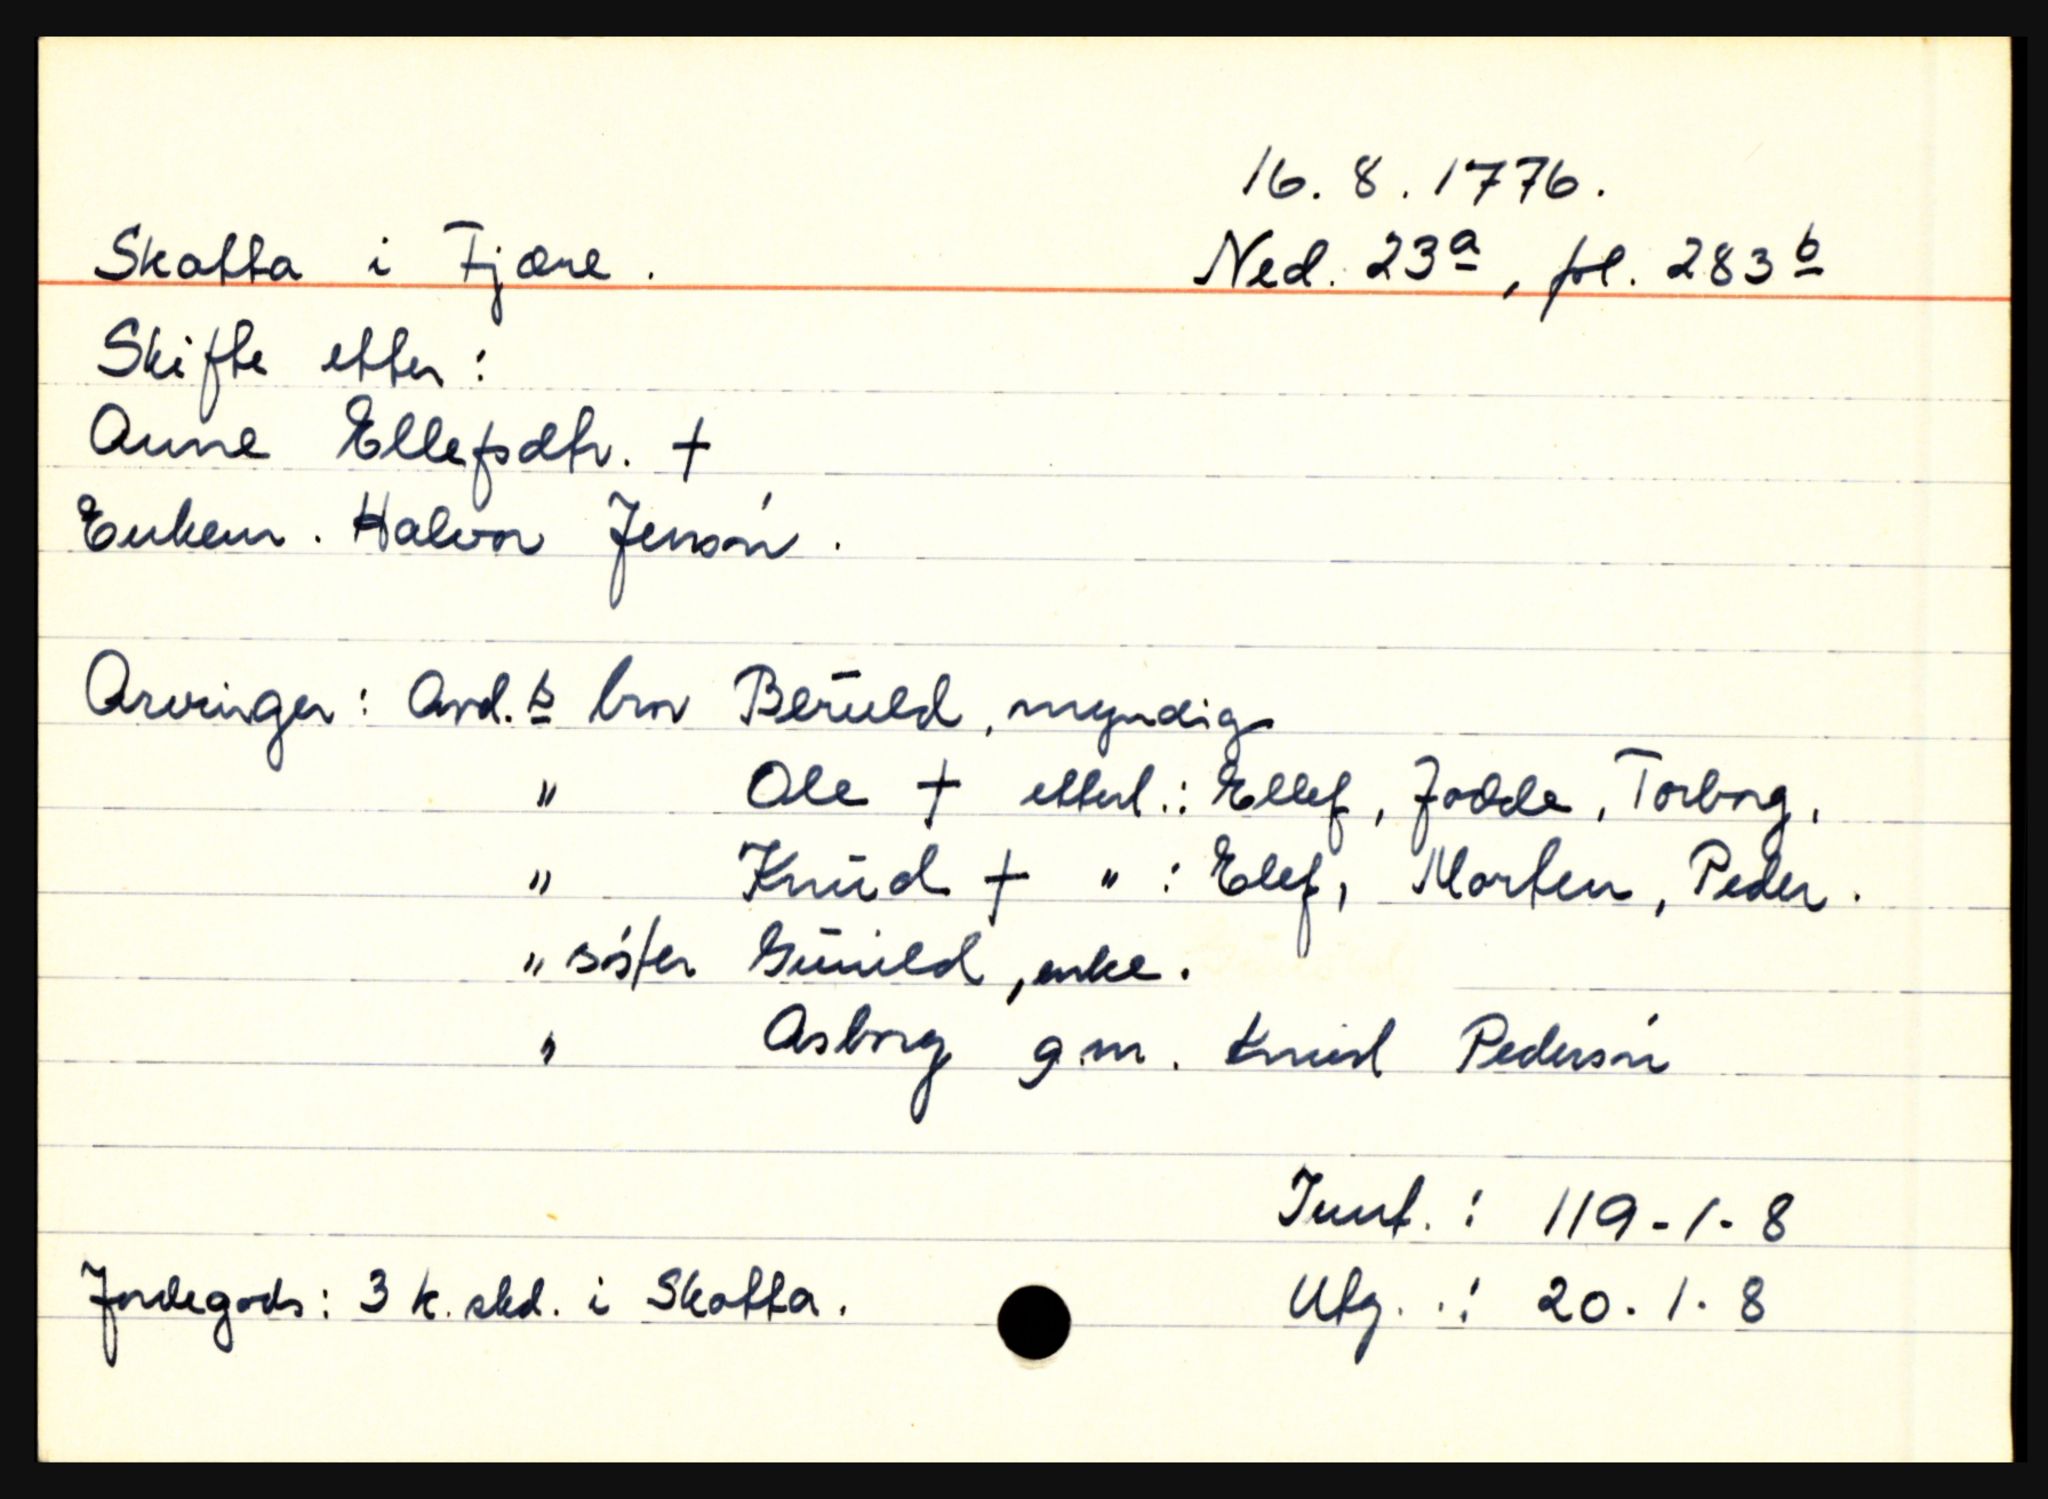 16. 8. 1776.
Skatta i Fjære. Ned. 23a, fol. 283b
Skifte etter:
Anne Ellefsdtr. †
Enkem. Halvor Jensøn.
Arvinger: Avd.s bror Beruld, myndig
" Ole † etterl.: Ellef, Jodde, Torborg,
" Knud † " : Elef, Morten, Peder.
" søster Gunild, enke.
" Asborg g.m. Knud Pedersøn
Innt. : 119-1-8
Jordegods: 3 k. skd. i Skatta. Utg. .: 20. 1. 8